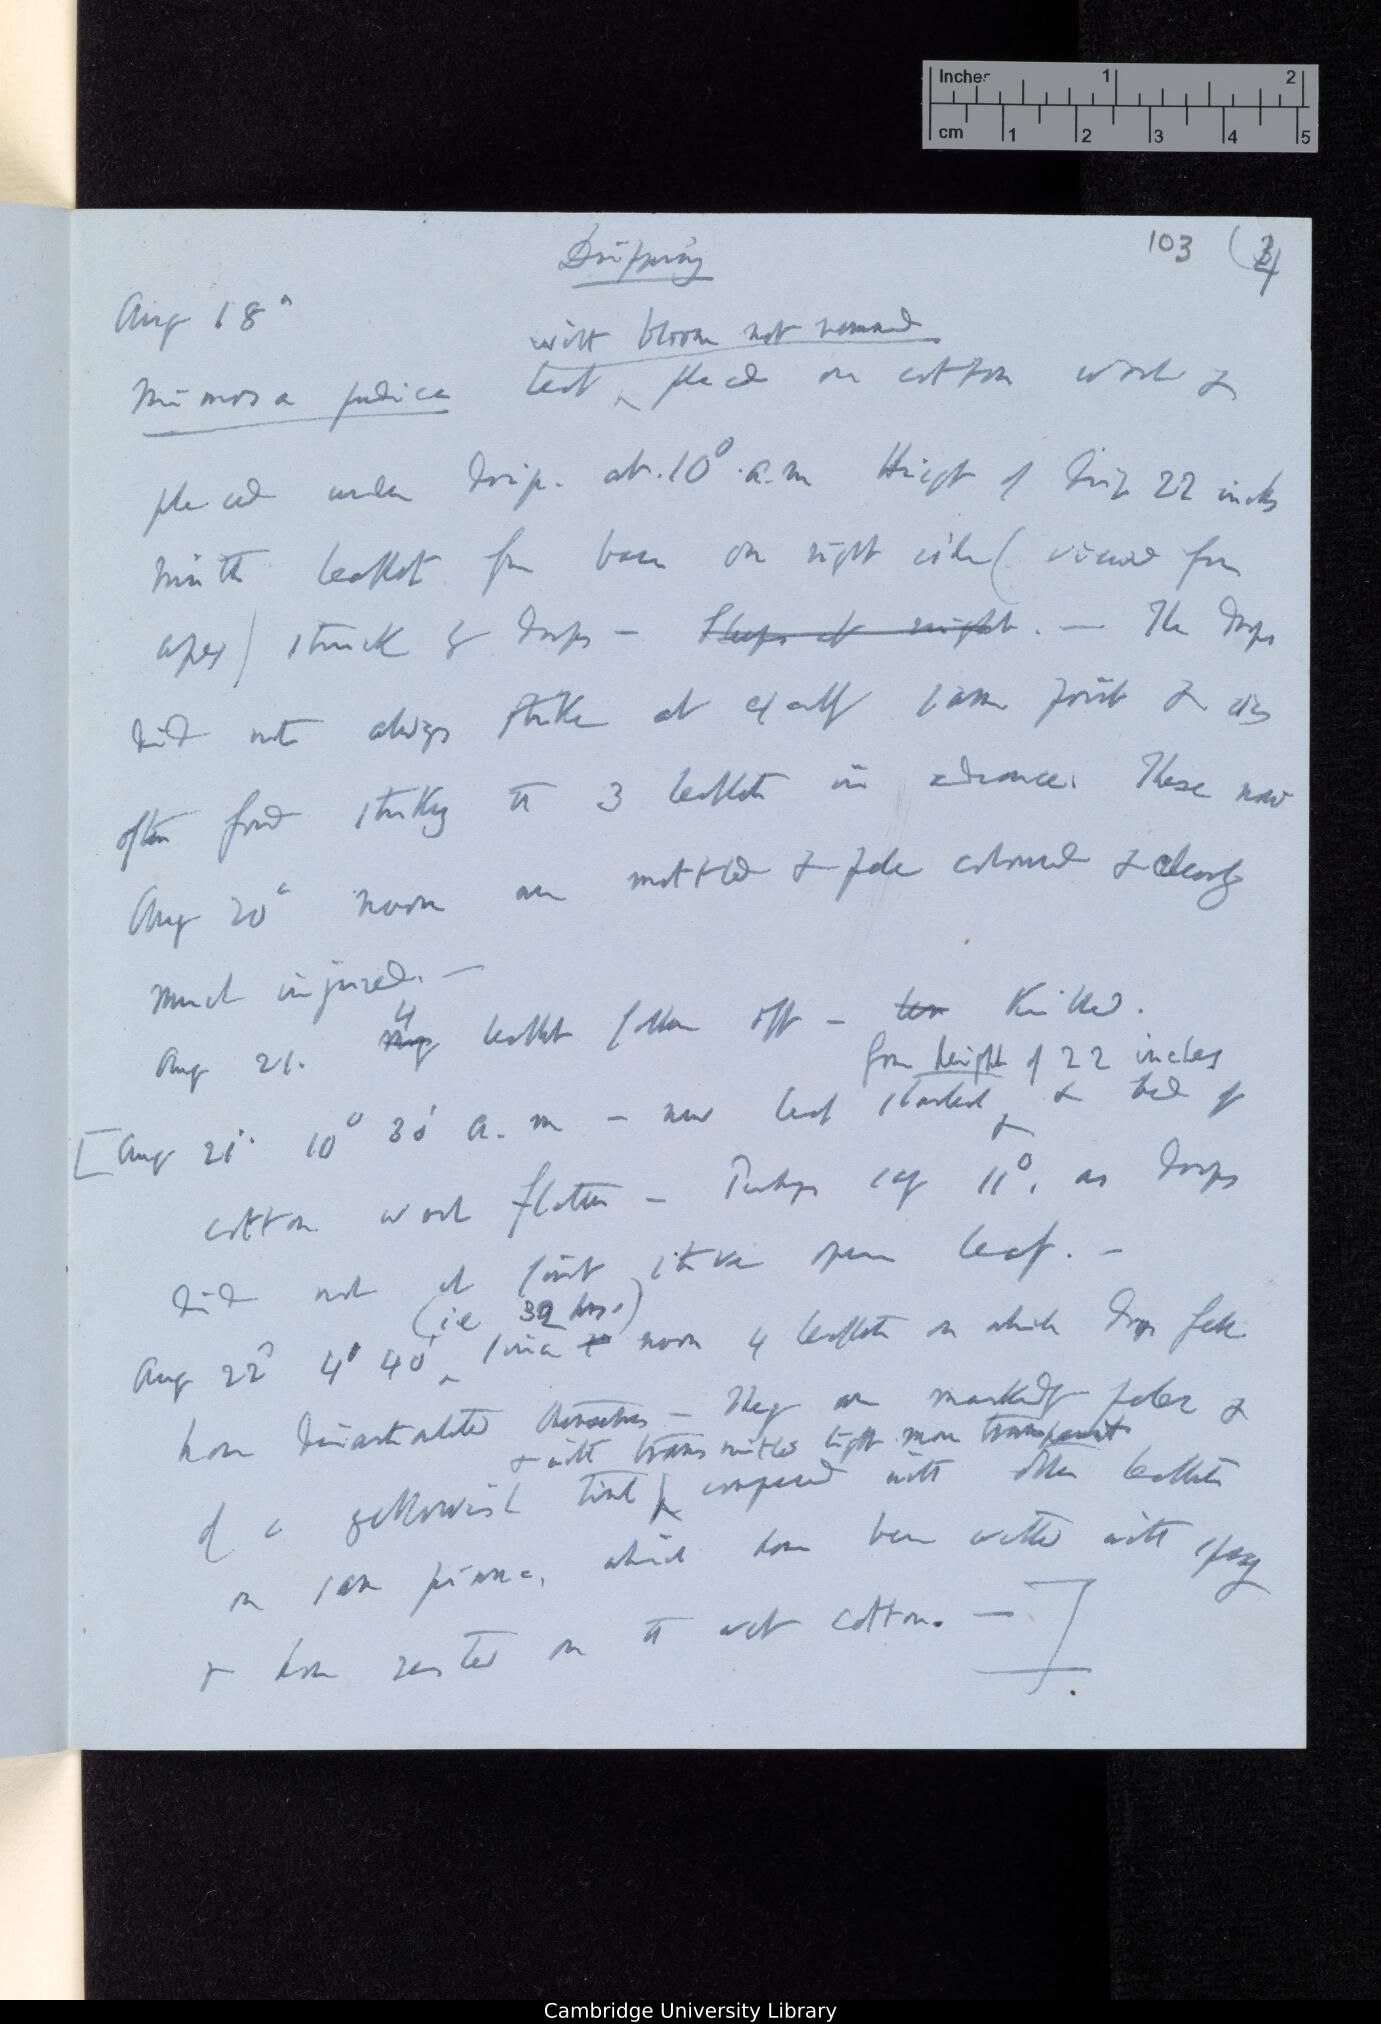 Inches 1 2
cm 1 2 3 4 5
103 (4
Dripping
Aug 18°
with bloom not removed
Mimosa pudica leaf placed on cotton wool &
placed under drip. at. 10° a.m Height of drip 22 inches
Ninth leaflet from base on right side (viewed from
apex) struck by drops — Sleeps at night. — The drops
did not always strike at exactly same point & was
often found striking the 3 leaflets in advance. These now
Aug 20° noon are mottled & pale coloured & clearly
much injured. —
Aug 21. 4 leaflets fallen off — killed.
from height of 22 inches
[Aug 21. 10° 30' a. m — new leaf started & bed of
cotton wool flatter — Perhaps say 11°, as drops
did not at first strike open leaf. —
(ie 32 hrs.)
Aug 22° 4° 40' since noon 4 leaflets on which drops fell
have disarticulated themselves — They are markedly paler &
& with transmitted light more transparent
of a yellowish tint compared with other leaflets
on same pinna, which have been wetted with spray
& have rested on the wet cotton. —]
Cambridge University Library